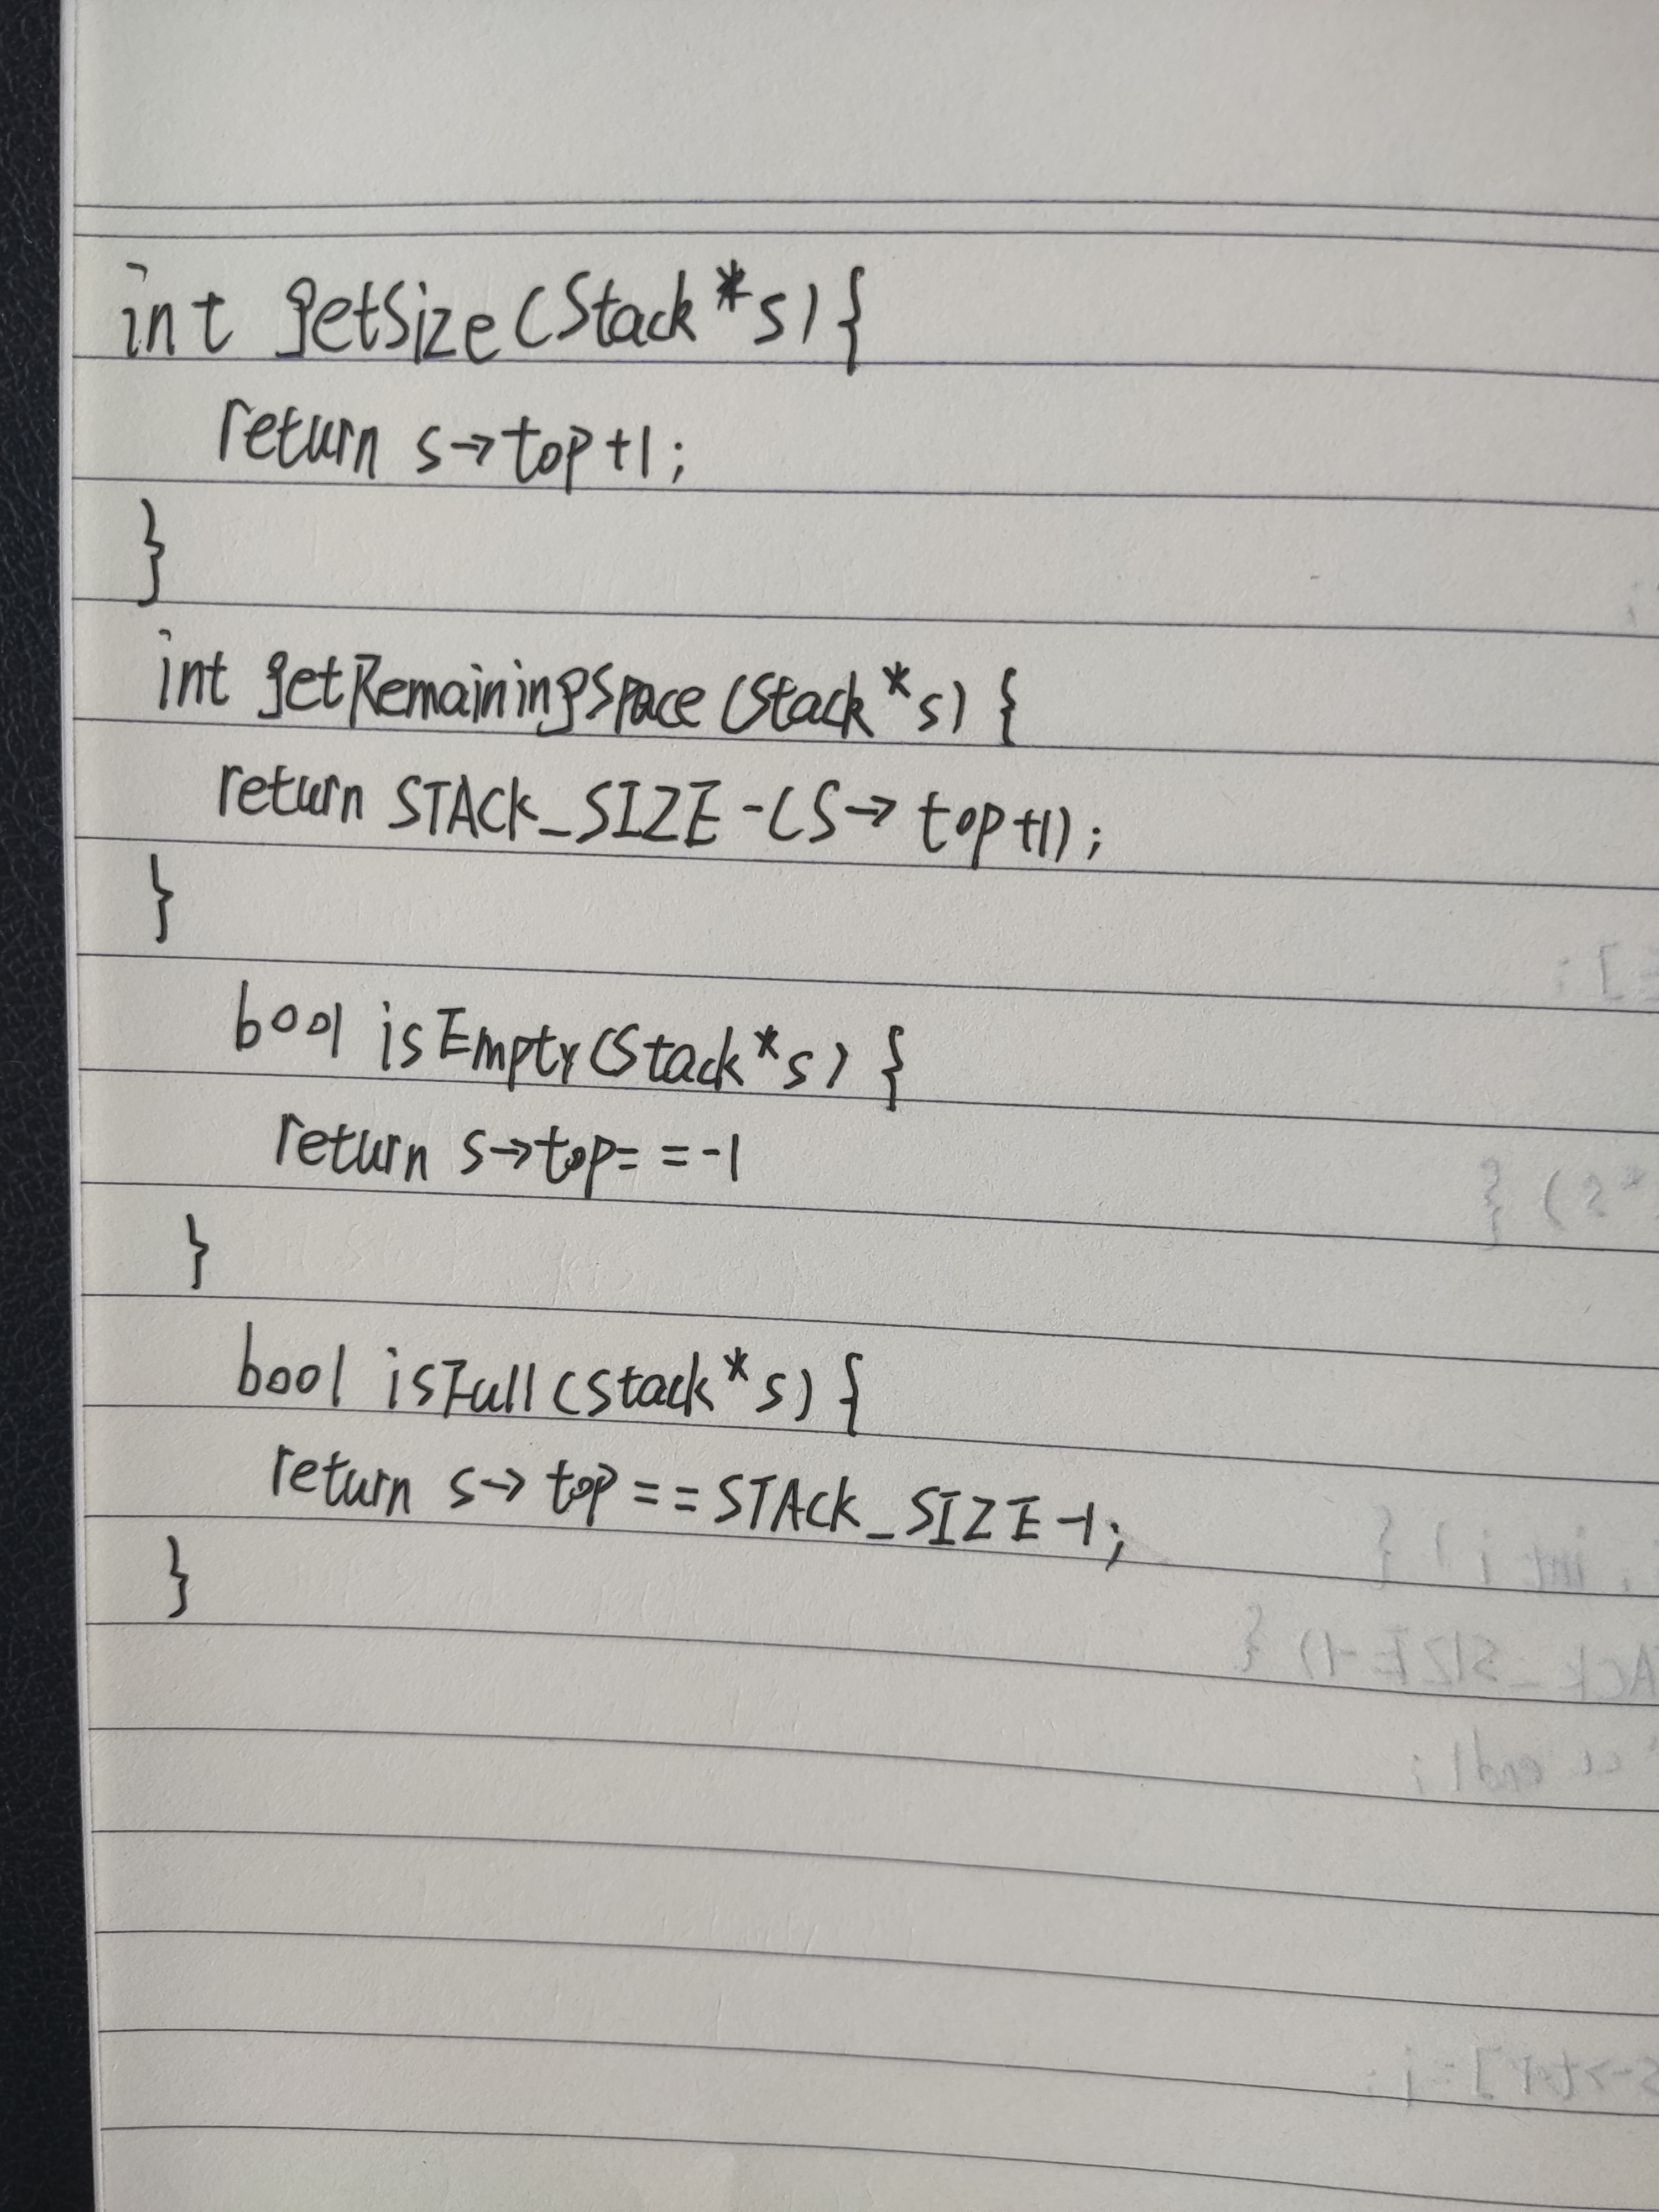 int getSize(Stack*s){
return s→top+1;
}
int getRemainingSpace(Stack*s){
return STACK_SIZE-(S→top+1);
}
bool isEmpty(Stack*s){
return s→top==-1
}
bool isFull(Stack*s){
return s→top==STACK_SIZE-1;
}